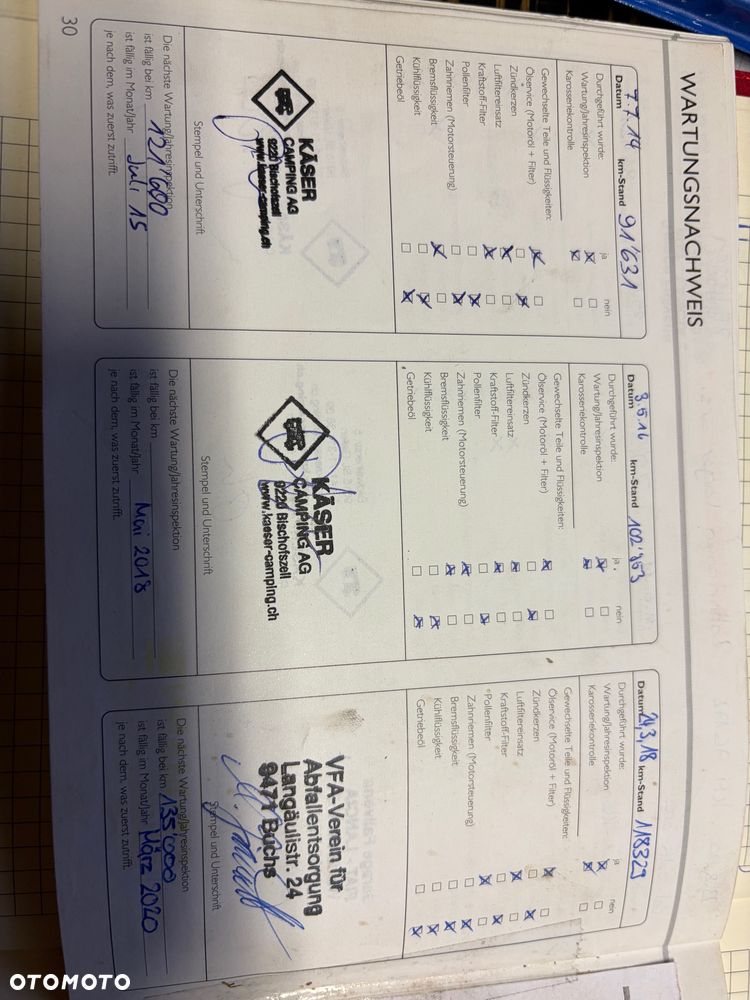 WARTUNGSNACHWEIS
Datum 7.7.14 km-Stand 91'631
Durchgeführt wurde: ja nein
Wartung/Jahresinspektion
Karosseriekontrolle
Gewechselte Teile und Flüssigkeiten:
Ölservice (Motoröl + Filter)
Zündkerzen
Luftfiltereinsatz
Kraftstoff-Filter
Pollenfilter
Zahnriemen (Motorsteuerung)
Bremsflüssigkeit
Kühlflüssigkeit
Getriebeöl
KÄSER
CAMPING AG
9220 Bischofszell
www.kaeser-camping.ch
Stempel und Unterschrift
Die nächste Wartung/Jahresinspektion
ist fällig bei km 121'600
ist fällig im Monat/Jahr Juli 15
je nach dem, was zuerst zutrifft.
Datum 3.5.16 km-Stand
Durchgeführt wurde: ja nein
Wartung/Jahresinspektion
Karosseriekontrolle
Gewechselte Teile und Flüssigkeiten:
Ölservice (Motoröl + Filter)
Zündkerzen
Luftfiltereinsatz
Kraftstoff-Filter
Pollenfilter
Zahnriemen (Motorsteuerung)
Bremsflüssigkeit
Kühlflüssigkeit
Getriebeöl
KÄSER
CAMPING AG
9220 Bischofszell
www.kaeser-camping.ch
Stempel und Unterschrift
Die nächste Wartung/Jahresinspektion
ist fällig bei km
ist fällig im Monat/Jahr Mai 2018
je nach dem, was zuerst zutrifft.
Datum 24.3.18 km-Stand 118329
Durchgeführt wurde: ja nein
Wartung/Jahresinspektion
Karosseriekontrolle
Gewechselte Teile und Flüssigkeiten:
Ölservice (Motoröl + Filter)
Zündkerzen
Luftfiltereinsatz
Kraftstoff-Filter
Pollenfilter
Zahnriemen (Motorsteuerung)
Bremsflüssigkeit
Kühlflüssigkeit
Getriebeöl
VFA-Verein für
Abfallentsorgung
Langäulistr. 24
9471 Buchs
Stempel und Unterschrift
Die nächste Wartung/Jahresinspektion
ist fällig bei km 135'000
ist fällig im Monat/Jahr März 2020
je nach dem, was zuerst zutrifft.
30
OTOMOTO